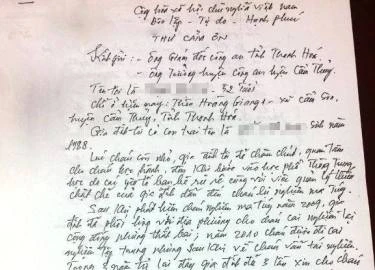 Cộng hòa xã hội chủ nghĩa việt nam
Độc lập - Tự do - Hạnh phúc
THƯ CẢM ƠN
Kính gửi: - Ông Giám đốc công an tỉnh Thanh Hoá.
- Ông Trưởng huyện công an huyện Cẩm Thủy.
Tên tôi là 52 tuổi
chỗ ở hiện nay: Thôn Hoàng Giang 1 - xã Cẩm Sơn,
huyện Cẩm Thủy, Tỉnh Thanh Hoá.
Gia đình tôi có con trai tên là sinh năm
1988.
Lúc cháu còn nhỏ, gia đình tôi đã chăm chút, quan tâm
cho cháu học hành, đến khi bước vào học phổ thông trung
học do các yếu tố bạn bè rủ rê cùng với việc quản lý thiếu
chặt chẽ của gia đình dẫn đến cháu bị nghiện ma túy.
Sau khi phát hiện cháu nghiện ma túy năm 2009, gia
đình đã phối hợp với địa phương cho cháu cai nghiện tại
cộng đồng nhưng thất bại, năm 2010 cháu được đi cai
nghiện tập trung nhưng sau khi về cháu vẫn tái nghiện.
Trong 3 năm trở lại đây gia đình đã 3 lần xin cho cháu